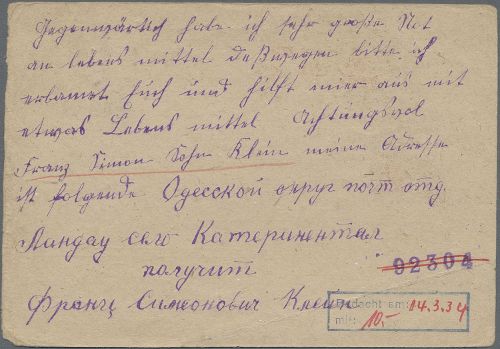 Gegenwärtich habe ich sehr große Not
an lebens mittel deßwegen bitte ich
erbarmt Euch und hilft mier aus mit
etwas Lebens mittel Achtungsvol
Franz Simon Sohn Klein meine Adresse
ist folgende Одесской округ почт отд.
Ландау село Катериненталь
получит
Франц Симеонович Клейн
02304
Bedacht am: 14.3.34
mit: 10.-